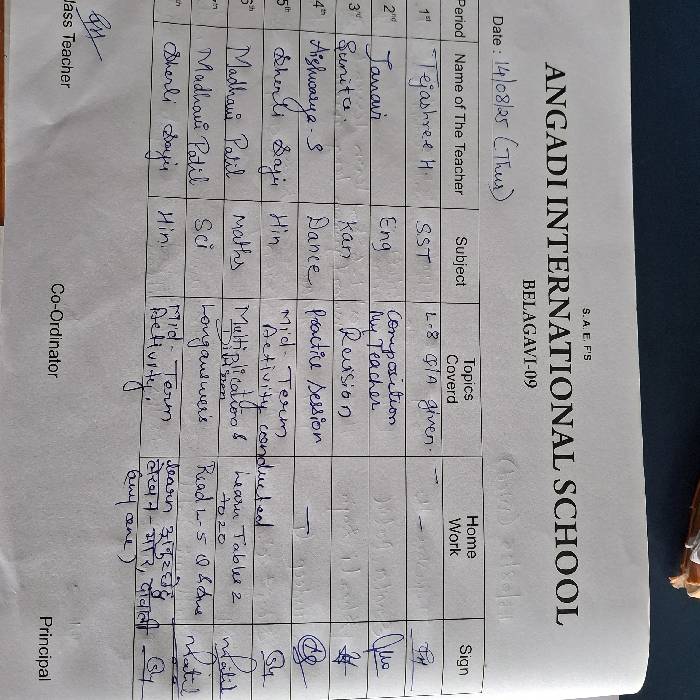 S.A.E.F'S
ANGADI INTERNATIONAL SCHOOL
BELAGAVI-09
Date : 14/08/25 (Thus)
Period Name of The Teacher Subject Topics Coverd Home Work Sign
1st Tejashree H. SST L-8 Q/A given. -
2nd Janavi Eng Composition My Teacher
3rd Sunita. Kan Revision
4th Aishwarya.S Dance Practice Session -
5th Sherli Saji Hin Mid-Term Activity conducted
6th Madhavi Patil Maths Multiplication & Division Learn Tables 2 to 20
Madhavi Patil Sci Long answers Read L-5
Sherli Saji Hin. Mid-Term Activity, learn
any one)
Class Teacher Co-Ordinator Principal